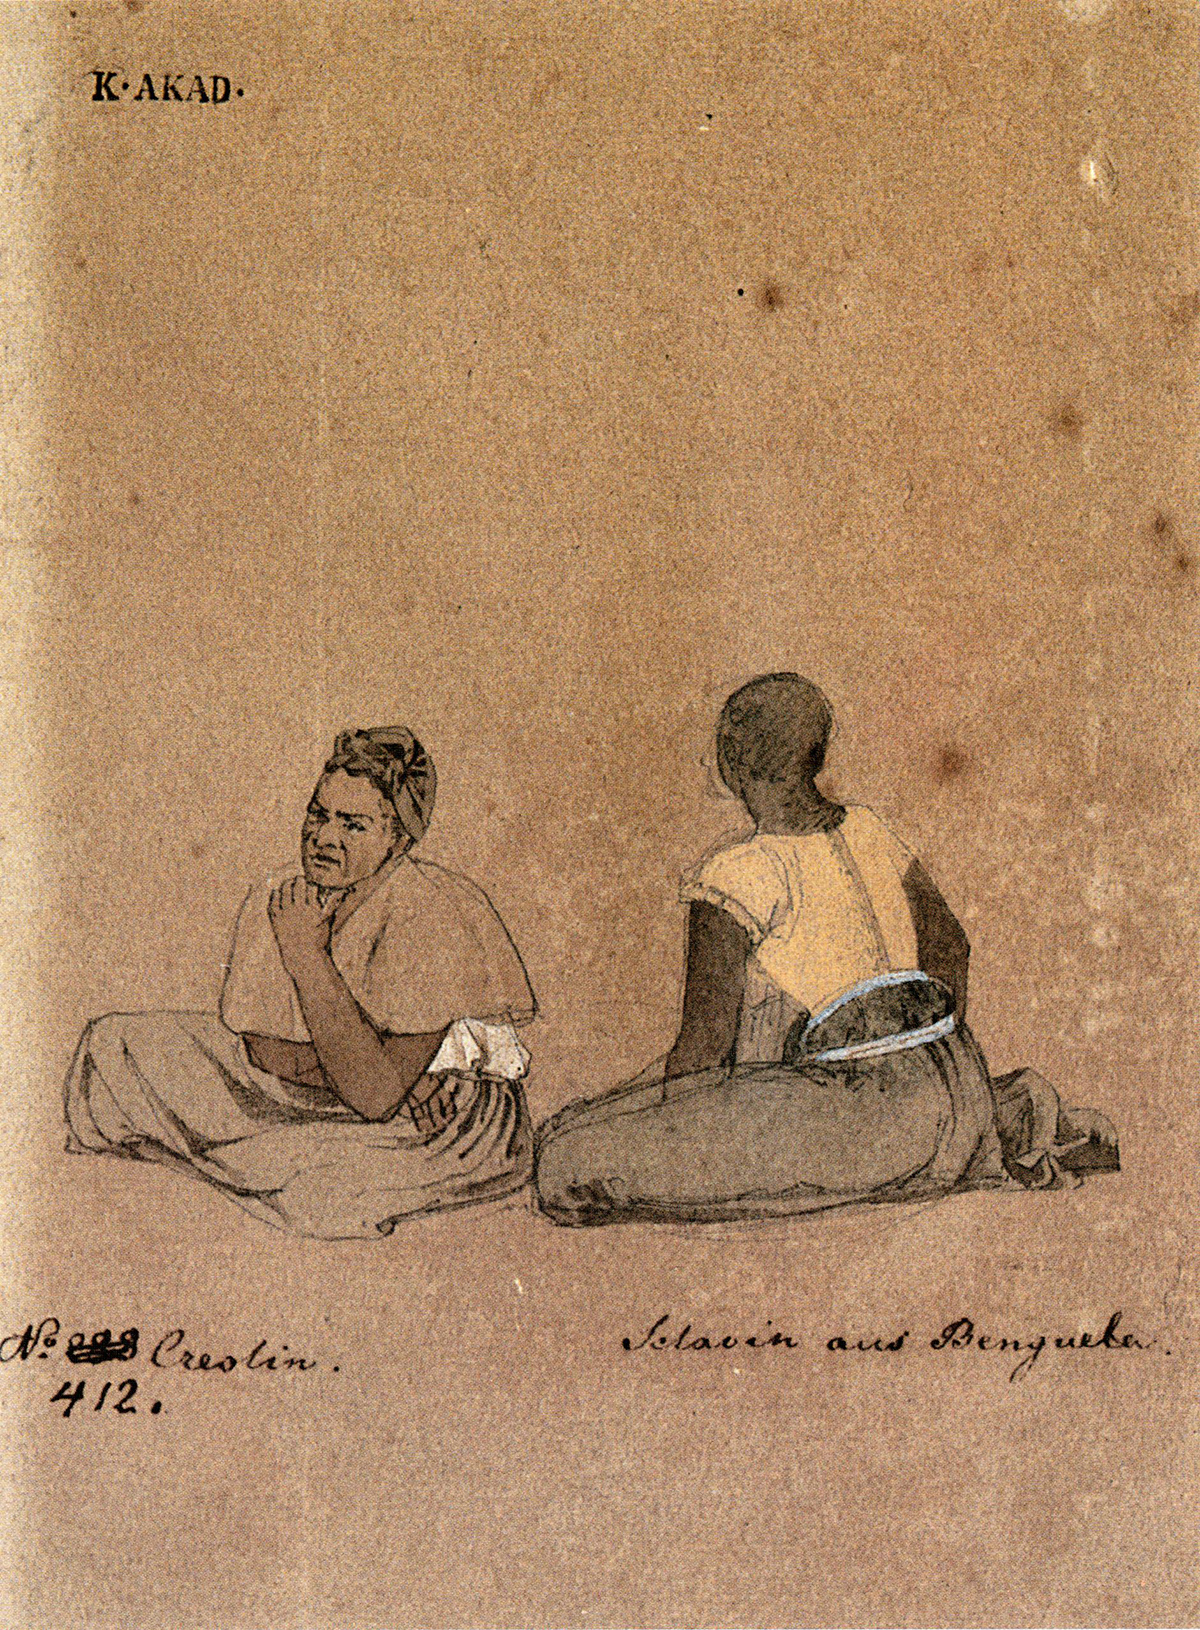 K·AKAD.
No. Creolin.
412.
Sclavin aus Benguela.